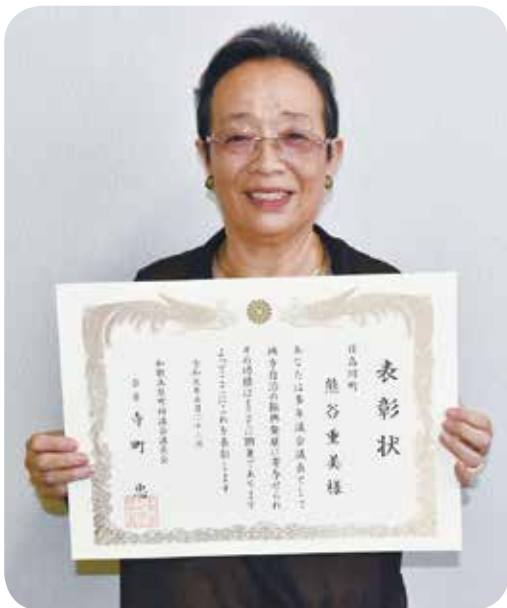 表彰状
日高川町
熊谷重美様
あなたは多年議会議員として
地方自治の振興発展に寄与せられ
その功績はまことに顕著であります
よってここにこれを表彰します
令和元年五月二十
和歌山県町村議会議長会
会長 寺町 忠